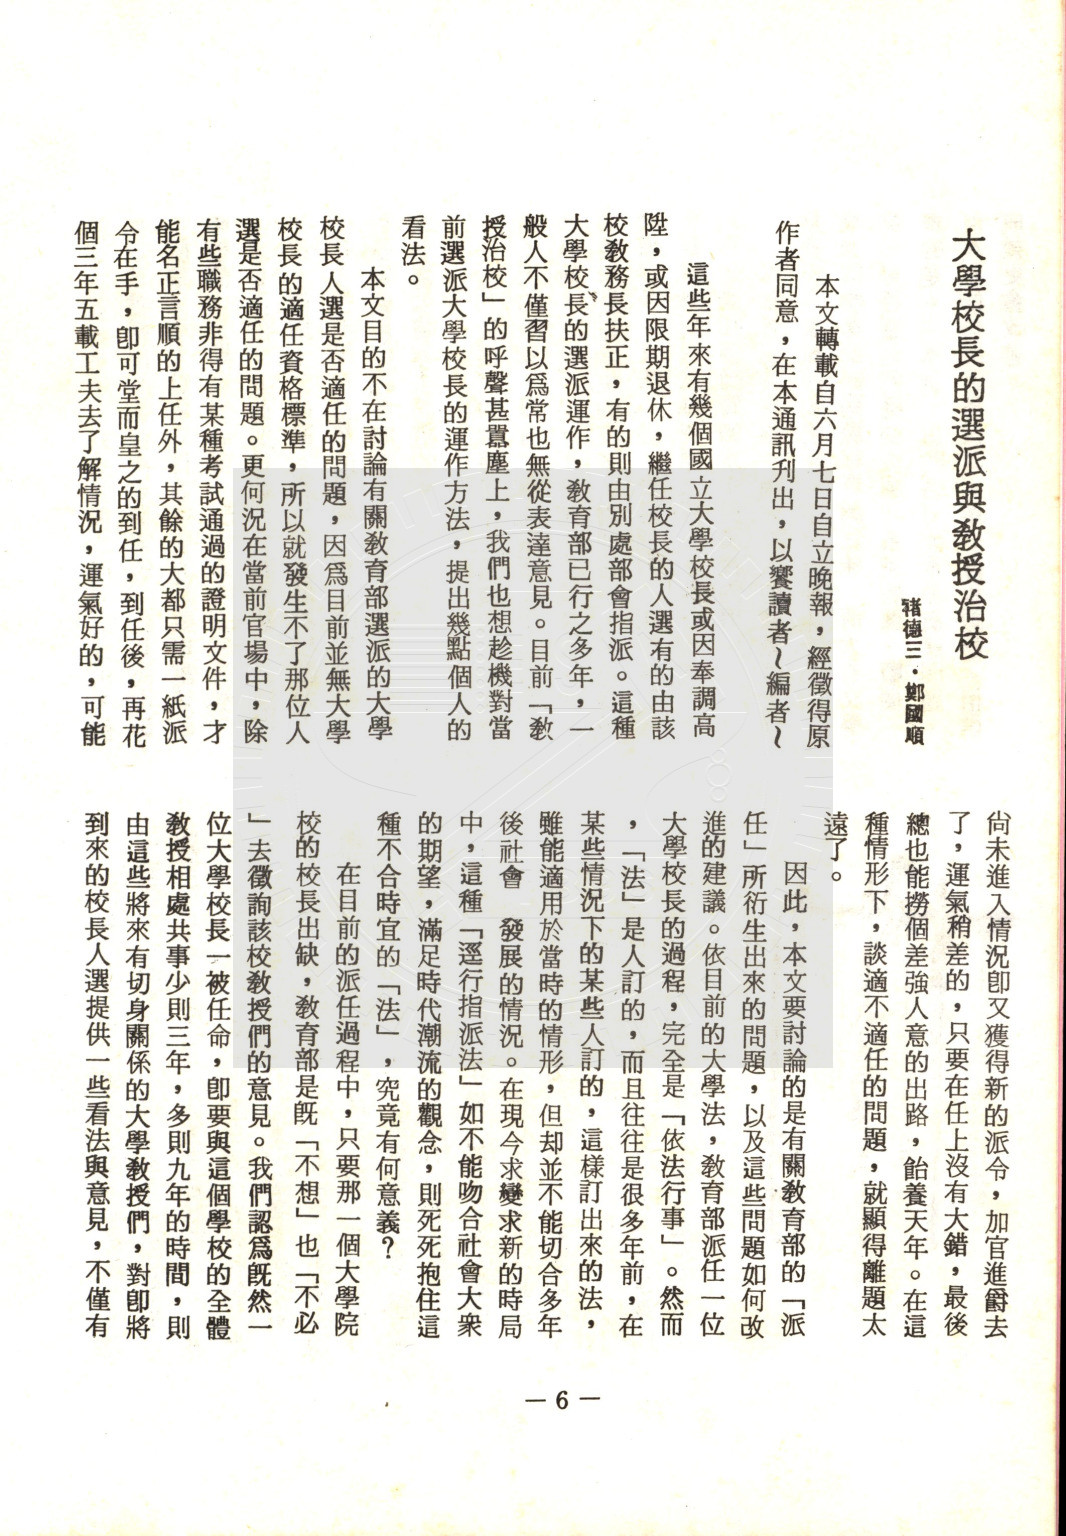 大學校長的選派與教授治校
諸德三．鄭國順
本文轉載自六月七日自立晚報，經徵得原
作者同意，在本通訊刊出，以饗讀者～編者～
這些年來有幾個國立大學校長或因奉調高
陞，或因限期退休，繼任校長的人選有的由該
校教務長扶正，有的則由別處部會指派。這種
大學校長的選派運作，教育部已行之多年，一
般人不僅習以爲常也無從表達意見。目前「教
授治校」的呼聲甚囂塵上，我們也想趁機對當
前選派大學校長的運作方法，提出幾點個人的
看法。
本文目的不在討論有關教育部選派的大學
校長人選是否適任的問題，因爲目前並無大學
校長的適任資格標準，所以就發生不了那位人
選是否適任的問題。更何況在當前官場中，除
有些職務非得有某種考試通過的證明文件，才
能名正言順的上任外，其餘的大都只需一紙派
令在手，卽可堂而皇之的到任，到任後，再花
個三年五載工夫去了解情況，運氣好的，可能
尙未進入情況卽又獲得新的派令，加官進爵去
了，運氣稍差的，只要在任上沒有大錯，最後
總也能撈個差強人意的出路，飴養天年。在這
種情形下，談適不適任的問題，就顯得離題太
遠了。
因此，本文要討論的是有關教育部的「派
任」所衍生出來的問題，以及這些問題如何改
進的建議。依目前的大學法，教育部派任一位
大學校長的過程，完全是「依法行事」。然而
，「法」是人訂的，而且往往是很多年前，在
某些情況下的某些人訂的，這樣訂出來的法，
雖能適用於當時的情形，但却並不能切合多年
後社會　發展的情況。在現今求變求新的時局
中，這種「逕行指派法」如不能吻合社會大衆
的期望，滿足時代潮流的觀念，則死死抱住這
種不合時宜的「法」，究竟有何意義？
在目前的派任過程中，只要那一個大學院
校的校長出缺，教育部是旣「不想」也「不必
」去徵詢該校教授們的意見。我們認爲旣然一
位大學校長一被任命，卽要與這個學校的全體
教授相處共事少則三年，多則九年的時間，則
由這些將來有切身關係的大學教授們，對卽將
到來的校長人選提供一些看法與意見，不僅有
— 6 —